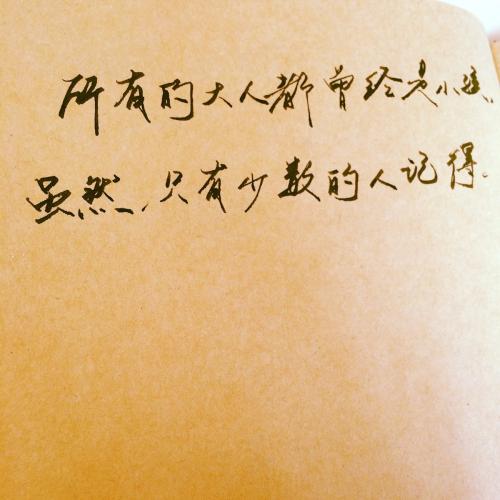 所有的大人都曾经是小孩，
虽然，只有少数的人记得。